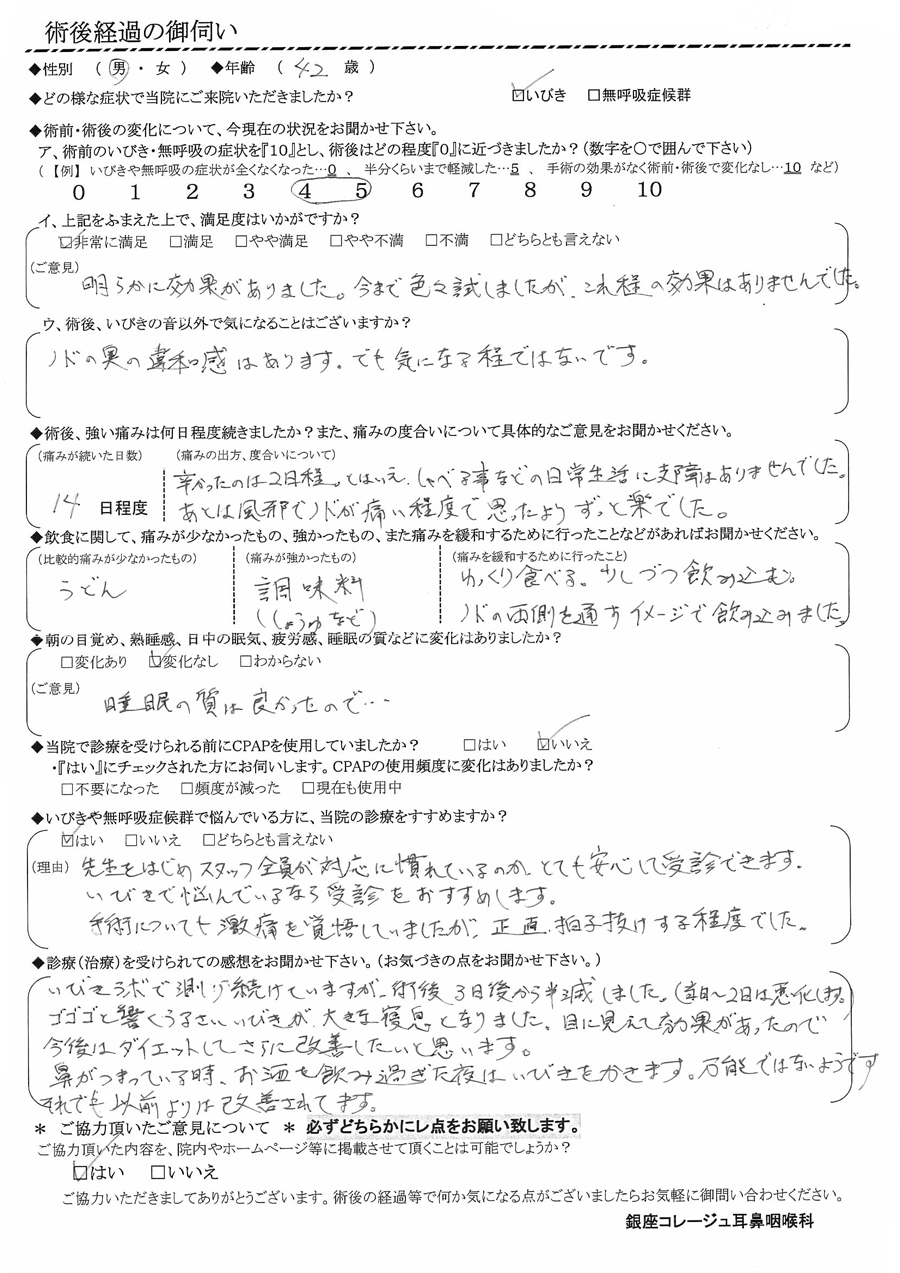 術後経過の御伺い
◆性別 ( 男 ・ 女 ) ◆年齢 ( 42 歳 )
◆どの様な症状で当院にご来院いただきましたか? ☑いびき □無呼吸症候群
◆術前・術後の変化について、今現在の状況をお聞かせ下さい。
ア、術前のいびき・無呼吸の症状を『10』とし、術後はどの程度『0』に近づきましたか?(数字を○で囲んで下さい)
(【例】いびきや無呼吸の症状が全くなくなった…0 、 半分くらいまで軽減した…5 、 手術の効果がなく術前・術後で変化なし…10 など)
0 1 2 3 4 5 6 7 8 9 10
イ、上記をふまえた上で、満足度はいかがですか?
☑非常に満足 □満足 □やや満足 □やや不満 □不満 □どちらとも言えない
(ご意見)
明らかに効果がありました。今まで色々試しましたが、これ程の効果はありませんでした。
ウ、術後、いびきの音以外で気になることはございますか?
ノドの奥の違和感はあります。でも気になる程ではないです。
◆術後、強い痛みは何日程度続きましたか?また、痛みの度合いについて具体的なご意見をお聞かせください。
(痛みが続いた日数) (痛みの出方、度合いについて)
辛かったのは2日程。とはいえ、しゃべる事などの日常生活に支障はありませんでした。
14 日程度 あとは風邪でノドが痛い程度で思ったよりずっと楽でした。
◆飲食に関して、痛みが少なかったもの、強かったもの、また痛みを緩和するために行ったことなどがあればお聞かせください。
(比較的痛みが少なかったもの) (痛みが強かったもの) (痛みを緩和するために行ったこと)
うどん 調味料 ゆっくり食べる。少しづつ飲み込む。
(しょうゆなど) ノドの両側を通すイメージで飲み込みました。
◆朝の目覚め、熟睡感、日中の眠気、疲労感、睡眠の質などに変化はありましたか?
□変化あり ☑変化なし □わからない
(ご意見)
睡眠の質は良かったので…
◆当院で診療を受けられる前にCPAPを使用していましたか? □はい ☑いいえ
・『はい』にチェックされた方にお伺いします。CPAPの使用頻度に変化はありましたか?
□不要になった □頻度が減った □現在も使用中
◆いびきや無呼吸症候群で悩んでいる方に、当院の診療をすすめますか?
☑はい □いいえ □どちらとも言えない
(理由) 先生をはじめスタッフ全員が対応に慣れているのか、とても安心して受診できます。
いびきで悩んでいるなら受診をおすすめします。
手術についても激痛を覚悟していましたが、正直、拍子抜けする程度でした。
◆診療(治療)を受けられての感想をお聞かせ下さい。(お気づきの点をお聞かせ下さい。)
いびきラボで測り続けていますが、術後3日後から半減しました。(当日〜2日は悪化します)
ゴゴゴと響くうるさいいびきが、大きな寝息となりました。目に見えて効果があったので
今後はダイエットしてさらに改善したいと思います。
鼻がつまっている時、お酒を飲み過ぎた夜はいびきをかきます。万能ではないようです
それでも以前よりは改善されてます。
＊ ご協力頂いたご意見について ＊ 必ずどちらかにレ点をお願い致します。
ご協力頂いた内容を、院内やホームページ等に掲載させて頂くことは可能でしょうか?
☑はい □いいえ
ご協力いただきましてありがとうございます。術後の経過等で何か気になる点がございましたらお気軽に御問い合わせください。
銀座コレージュ耳鼻咽喉科